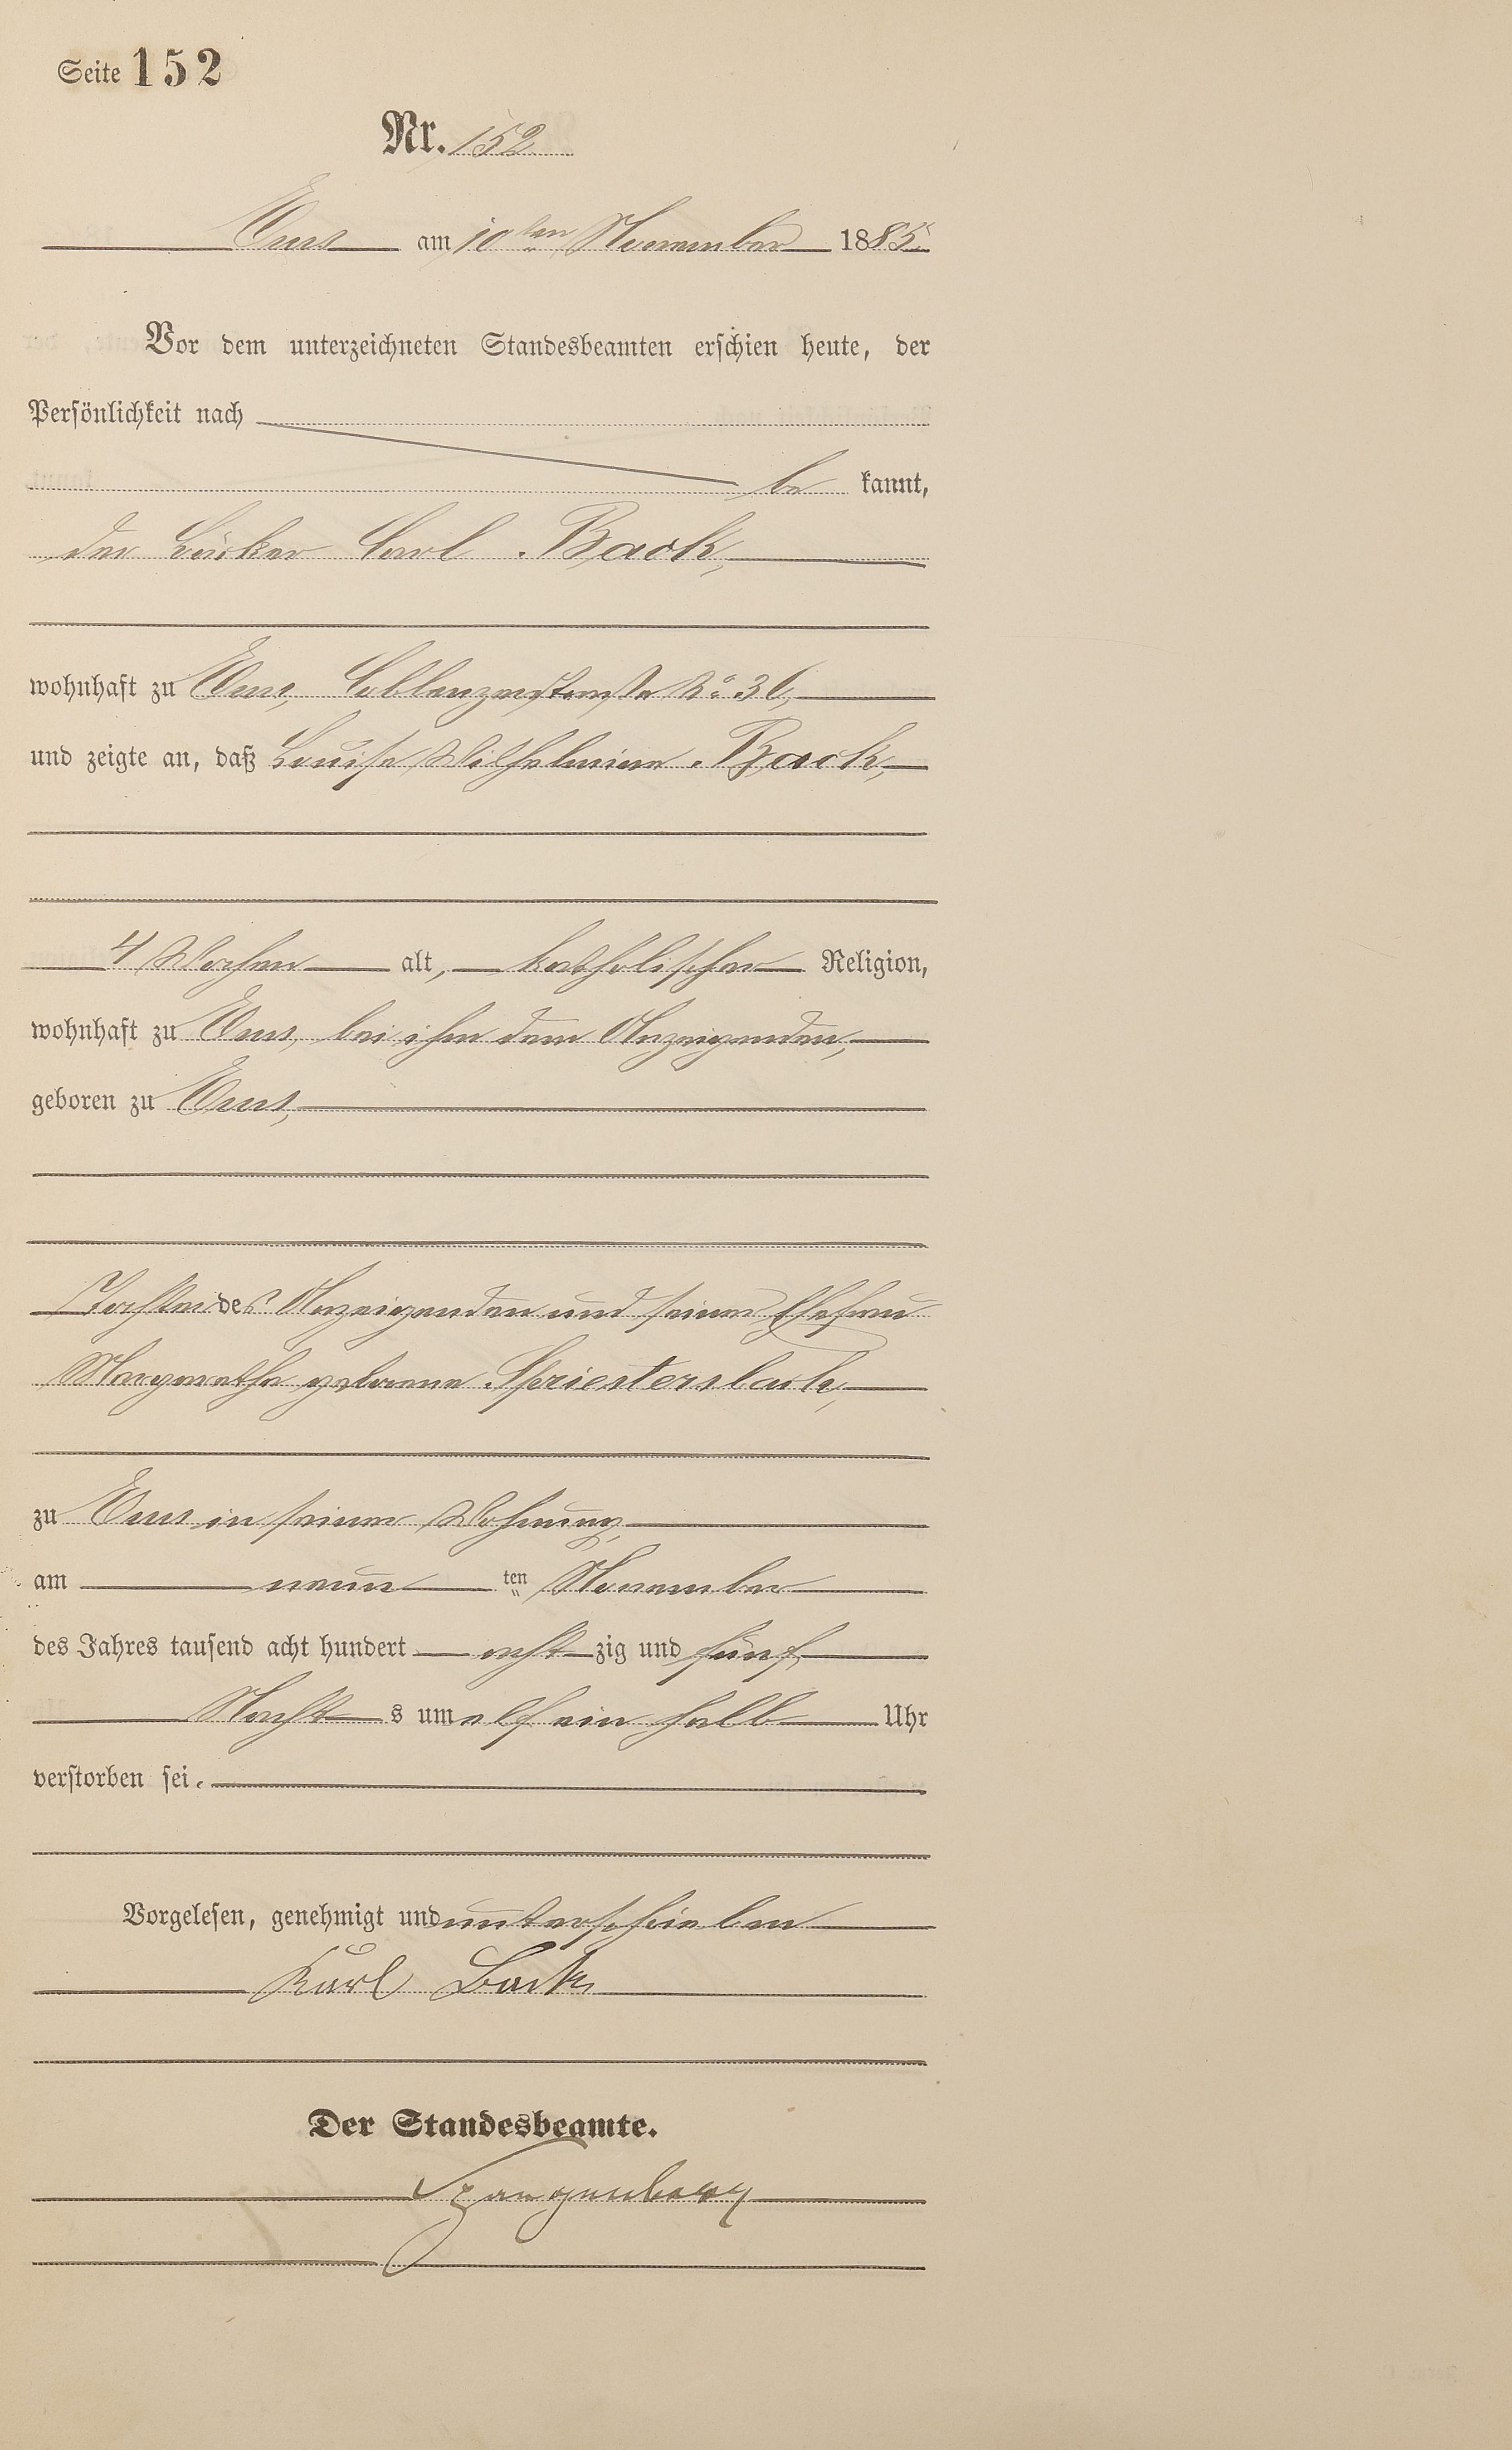 Seite 152
Nr. 152
Ems am 10ten November 1885.
Vor dem unterzeichneten Standesbeamten erschien heute, der
Persönlichkeit nach
be kannt,
der Bäcker Carl Back,
wohnhaft zu Ems, Coblenzerstraße No 36,
und zeigte an, daß Louise Wilhelmine Back,
4 Wochen alt, katholischer Religion,
wohnhaft zu Ems, bei ihm dem Anzeigenden,
geboren zu Ems,
Tochter des Anzeigenden und seiner Ehefrau
Margaretha geborene Spriestersbach,
zu Ems in seiner Wohnung,
am neun ten November
des Jahres tausend acht hundert acht zig und fünf
Nacht s um elf ein halb Uhr
verstorben sei.
Vorgelesen, genehmigt und unterschrieben
Karl Back
Der Standesbeamte.